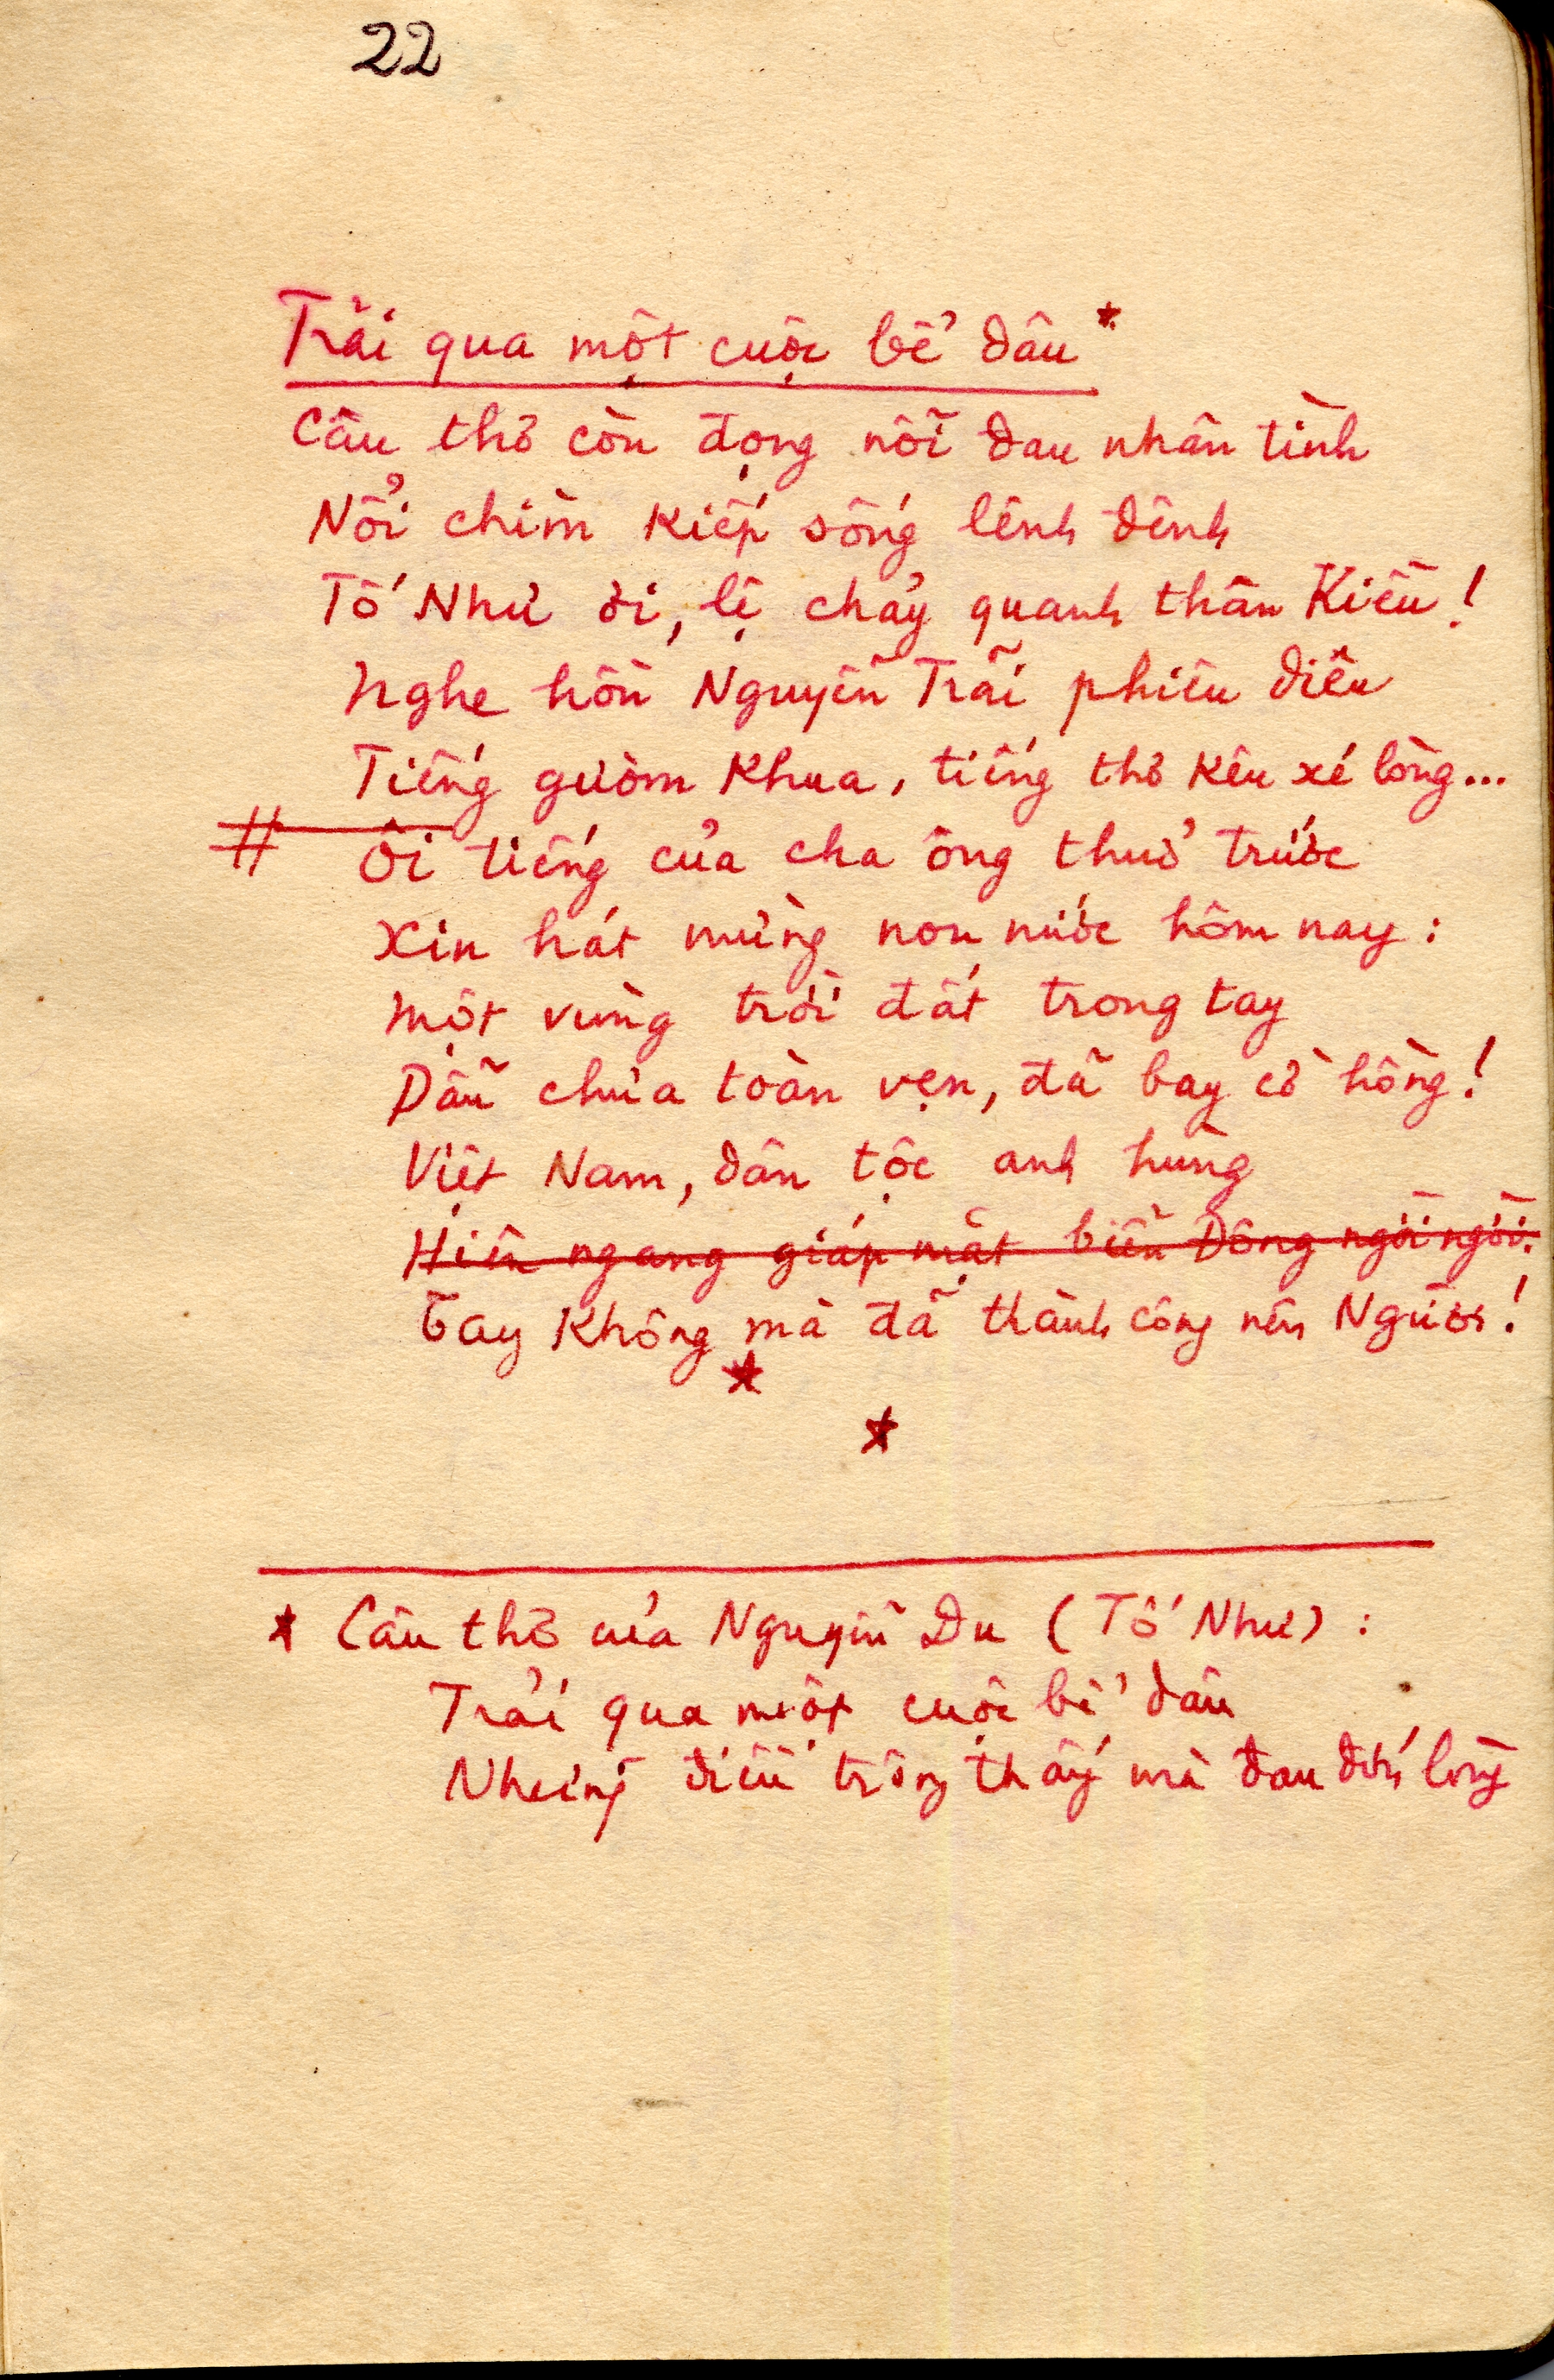 22
Trải qua một cuộc bể dâu *
Câu thơ còn đọng nỗi đau nhân tình
Nổi chìm kiếp sống lênh đênh
Tố Như ơi, lệ chảy quanh thân Kiều!
Nghe hồn Nguyễn Trãi phiêu diêu
Tiếng gươm khua, tiếng thơ kêu xé lòng...
# Ôi tiếng của cha ông thuở trước
Xin hát mừng non nước hôm nay:
Một vùng trời đất trong tay
Dẫu chưa toàn vẹn, đã bay cờ hồng!
Việt Nam, dân tộc anh hùng
Hiên ngang giáp mặt biển Đông ngời ngời.
Tay không mà đã thành công nên Người!
*
*
* Câu thơ của Nguyễn Du (Tố Như):
Trải qua một cuộc bể dâu
Những điều trông thấy mà đau đớn lòng